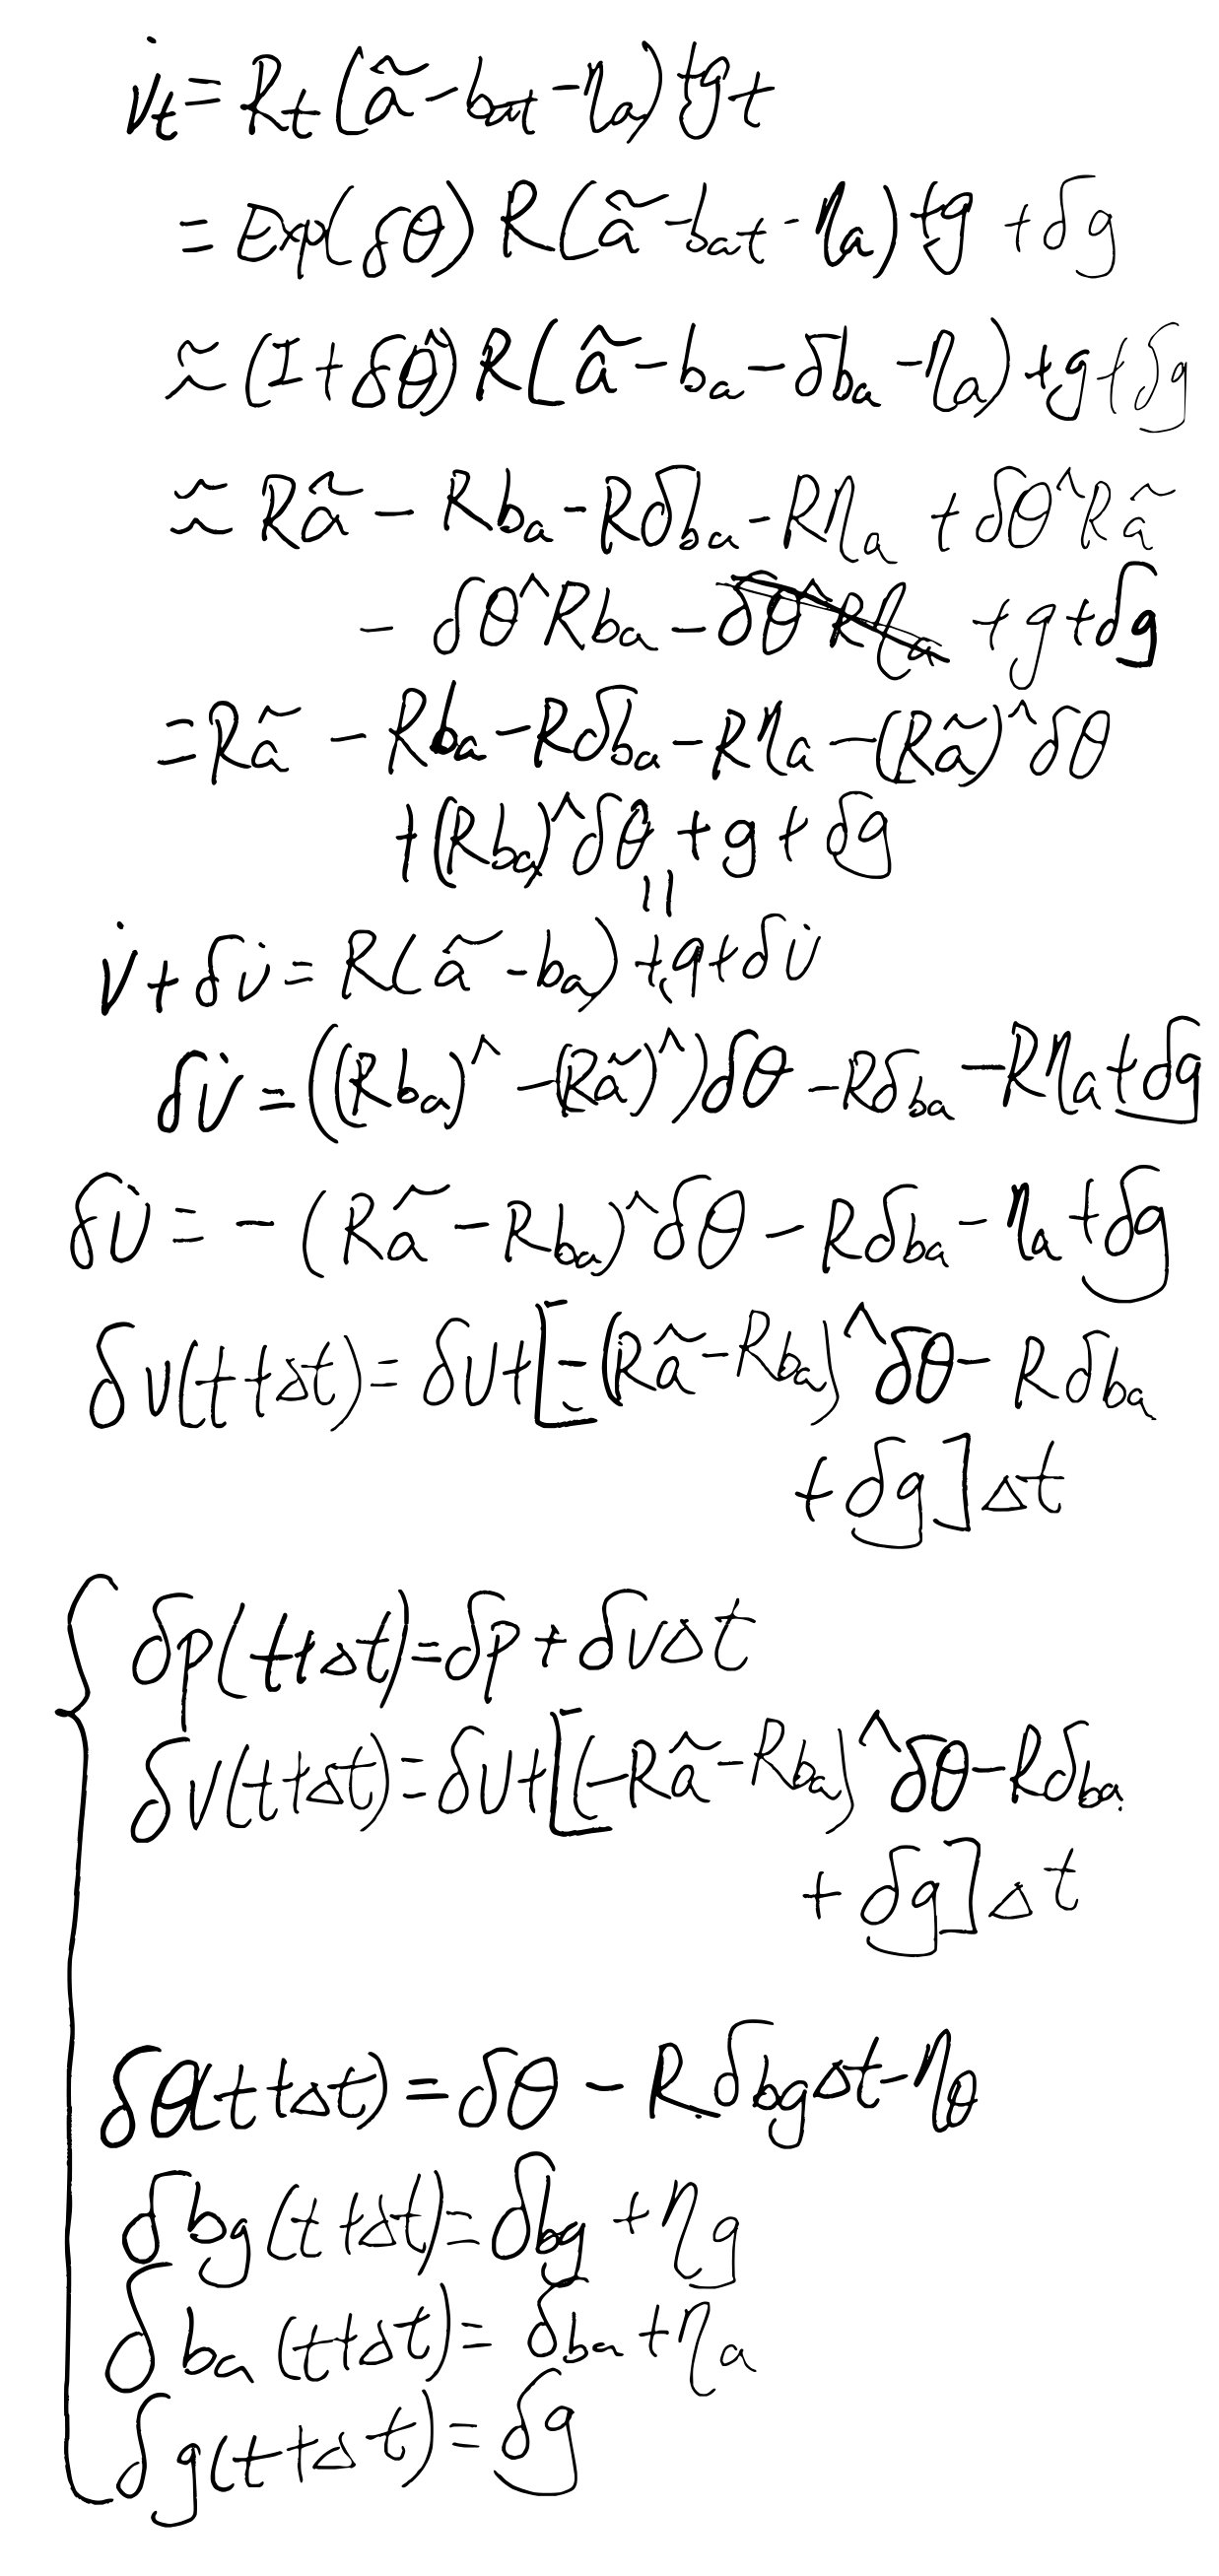 v̇t = Rt(ã - bat - ηa) + gt
= Exp(δθ) R(ã - bat - ηa) + g + δg
≈ (I + δθ^) R(ã - ba - δba - ηa) + g + δg
≈ Rã - Rba - Rδba - Rηa + δθ^Rã
- δθ^Rba - δθ^Rηa + g + δg
= Rã - Rba - Rδba - Rηa - (Rã)^δθ
+ (Rba)^δθ + g + δg
||
v̇ + δv̇ = R(ã - ba) + g + δv̇
δv̇ = ((Rba)^ - (Rã)^)δθ - Rδba - Rηa + δg
δv̇ = - (Rã - Rba)^δθ - Rδba - ηa + δg
δv(t+Δt) = δv + [-(Rã - Rba)^δθ - Rδba
+ δg]Δt
δp(t+Δt) = δp + δvΔt
δv(t+Δt) = δv + [(-Rã - Rba)^δθ - Rδba
+ δg]Δt
δθ(t+Δt) = δθ - RδbgΔt - ηθ
δbg(t+Δt) = δbg + ηg
δba(t+Δt) = δba + ηa
δg(t+Δt) = δg